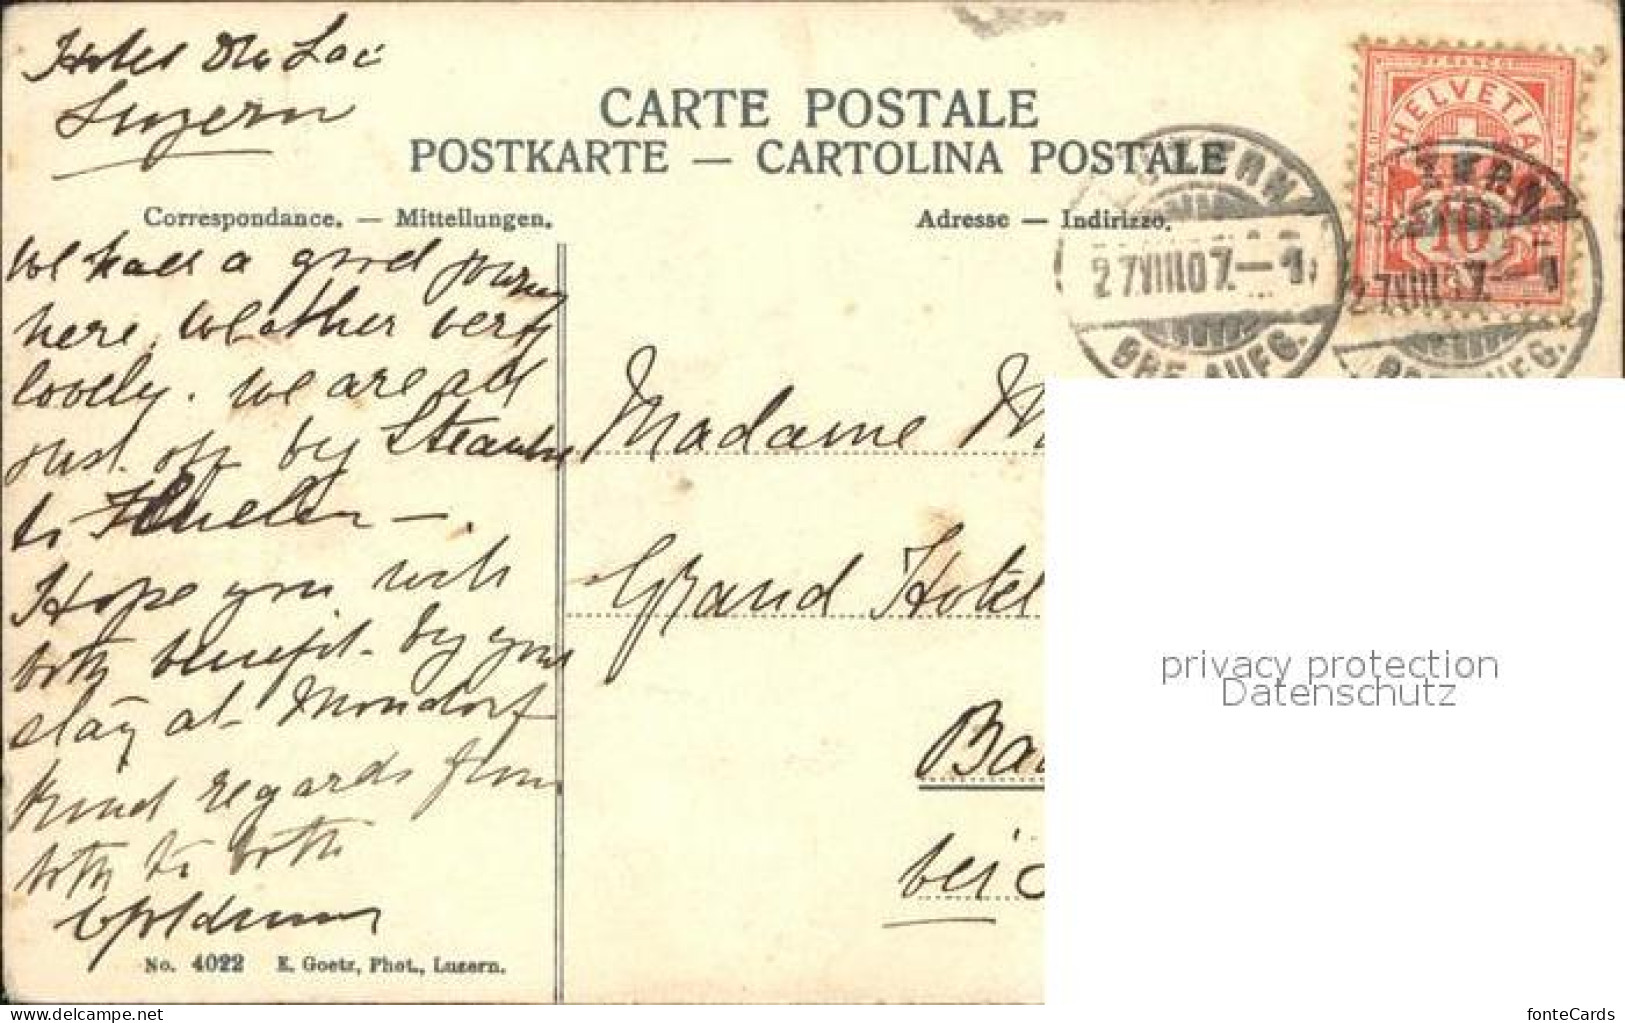 Hotel Du Lac
Luzern
CARTE POSTALE
POSTKARTE — CARTOLINA POSTALE
Correspondance. — Mitteilungen.
Adresse — Indirizzo.
HELVETIA
10
27.VIII.07.—1
27.VIII.07.—1
BRF.AUFG.
We had a good journey
here, Weather very
lovely. We are all
just off by Steamer
to
Hope you will
both benefit by your
stay at Mondorf
Kind regards from
both to both
No. 4022 E. Goetz, Phot., Luzern.
Madame M
Grand Hotel
Ba
bei
privacy protection
Datenschutz
www.delcampe.net
fonteCards